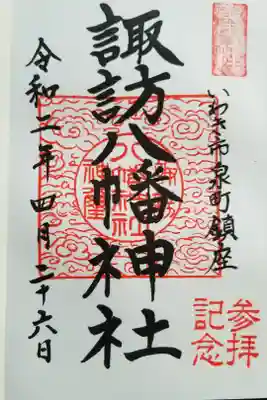 いわき市泉町鎮座
諏訪八幡神社
令和二年四月二十六日
参拝
記念